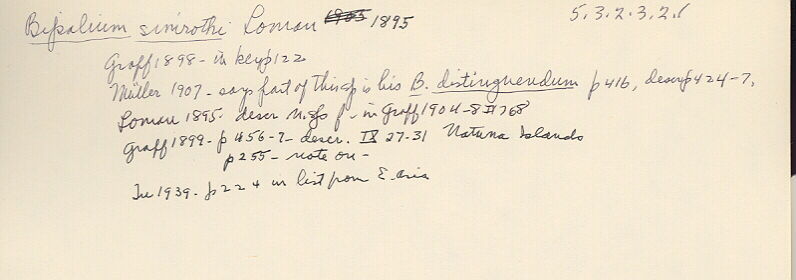 Bipalium simrothi Loman 1903 1895 5.3.2.3.2.1
Graff 1898 - in key p 122
Müller 1907 - says part of this sp is his B. distinguendum p 416, descr p 424-7.
Loman 1895 descr n. sp p - in Graff 1904-8 II 768
Graff 1899 - p 456-7 - descr. IX 27-31 Natuna Islands
p 255 - note on -
In 1939 - p 224 in list from E. asia